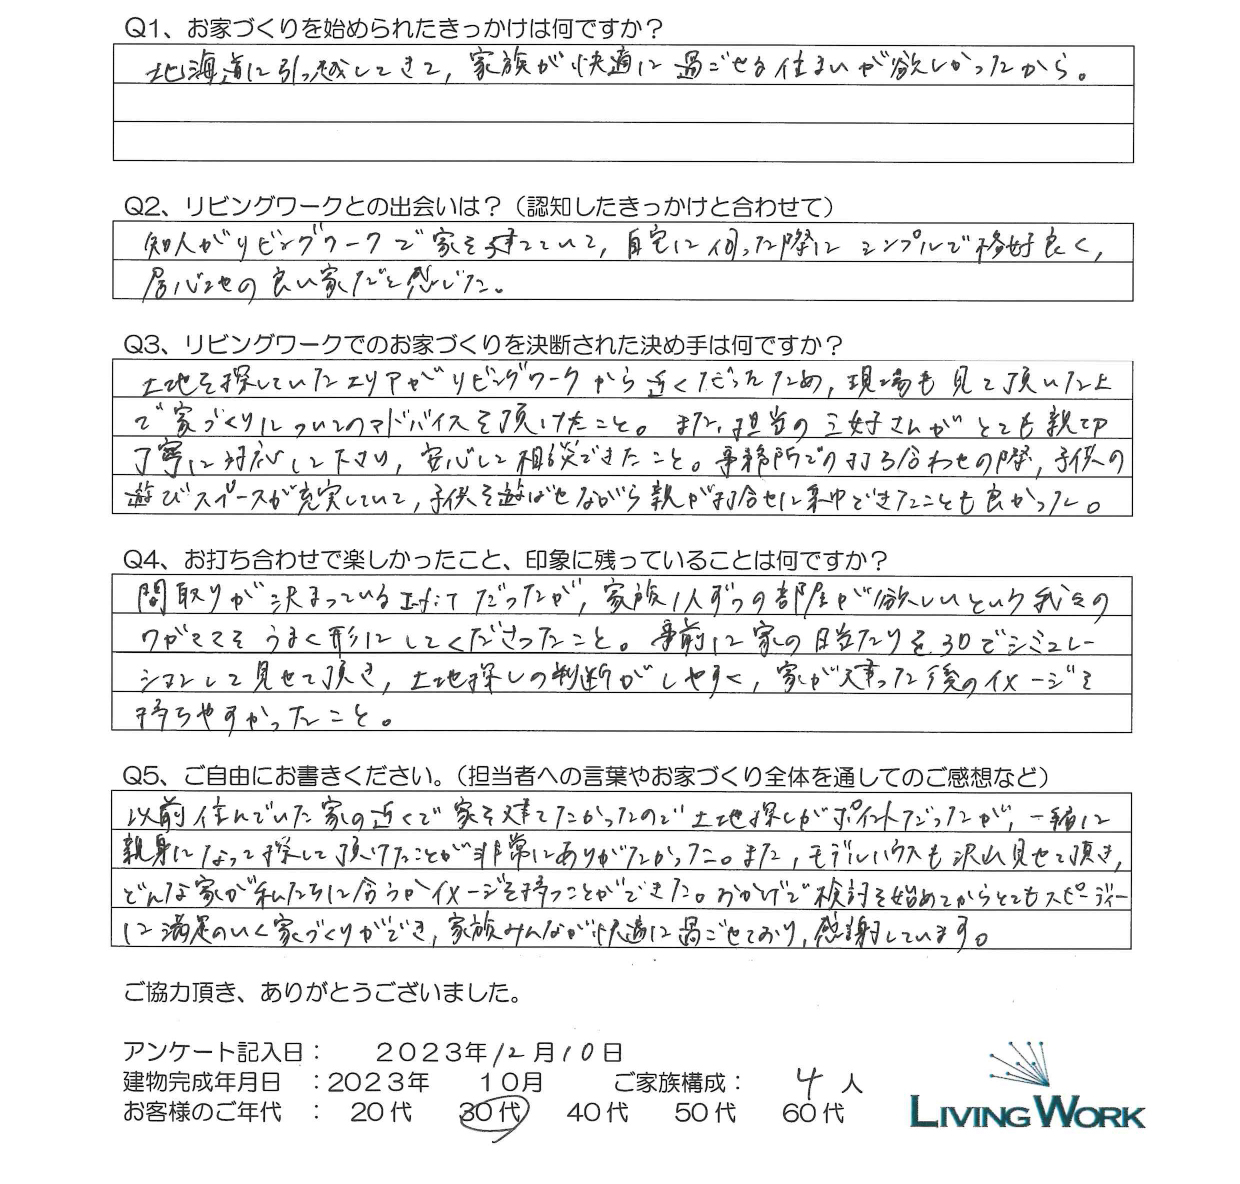 Q1、お家づくりを始められたきっかけは何ですか？
北海道に引っ越してきて，家族が快適に過ごせる住まいが欲しかったから。
Q2、リビングワークとの出会いは？（認知したきっかけと合わせて）
知人がリビングワークで家を建てていて，自宅に伺った際に シンプルで格好良く，
居心地の良い家だと感じた。
Q3、リビングワークでのお家づくりを決断された決め手は何ですか？
土地を探していたエリアがリビングワークから近くだったため，現場も見て頂いた上
で家づくりについてのアドバイスを頂けたこと。また，担当の三好さんがとても親切
丁寧に対応して下さり，安心して相談できたこと。事務所での打ち合わせの際，子供の
遊びスペースが充実していて，子供を遊ばせながら親が打合せに集中できたことも良かった。
Q4、お打ち合わせで楽しかったこと、印象に残っていることは何ですか？
間取りが決まっている土地だったが，家族1人ずつの部屋が欲しいという我々の
ワガママをうまく形にしてくださったこと。事前に家の日当たりを3Dでシミュレー
ションして見せて頂き，土地探しの判断がしやすく，家が建った後のイメージを
持ちやすかったこと。
Q5、ご自由にお書きください。（担当者への言葉やお家づくり全体を通してのご感想など）
以前住んでいた家の近くで家を建てたかったので土地探しがポイントだったが，一緒に
親身になって探して頂けたことが非常にありがたかった。また，モデルハウスも沢山見せて頂き，
どんな家が私たちに合うかイメージを持つことができた。おかげで検討を始めてからとてもスピーディー
に満足のいく家づくりができ，家族みんなが快適に過ごせており，感謝しています。
ご協力頂き、ありがとうございました。
アンケート記入日： 2023年12月10日
建物完成年月日 ：2023年 10月 ご家族構成： 4 人
お客様のご年代 ： 20代 30代 40代 50代 60代
LIVING WORK